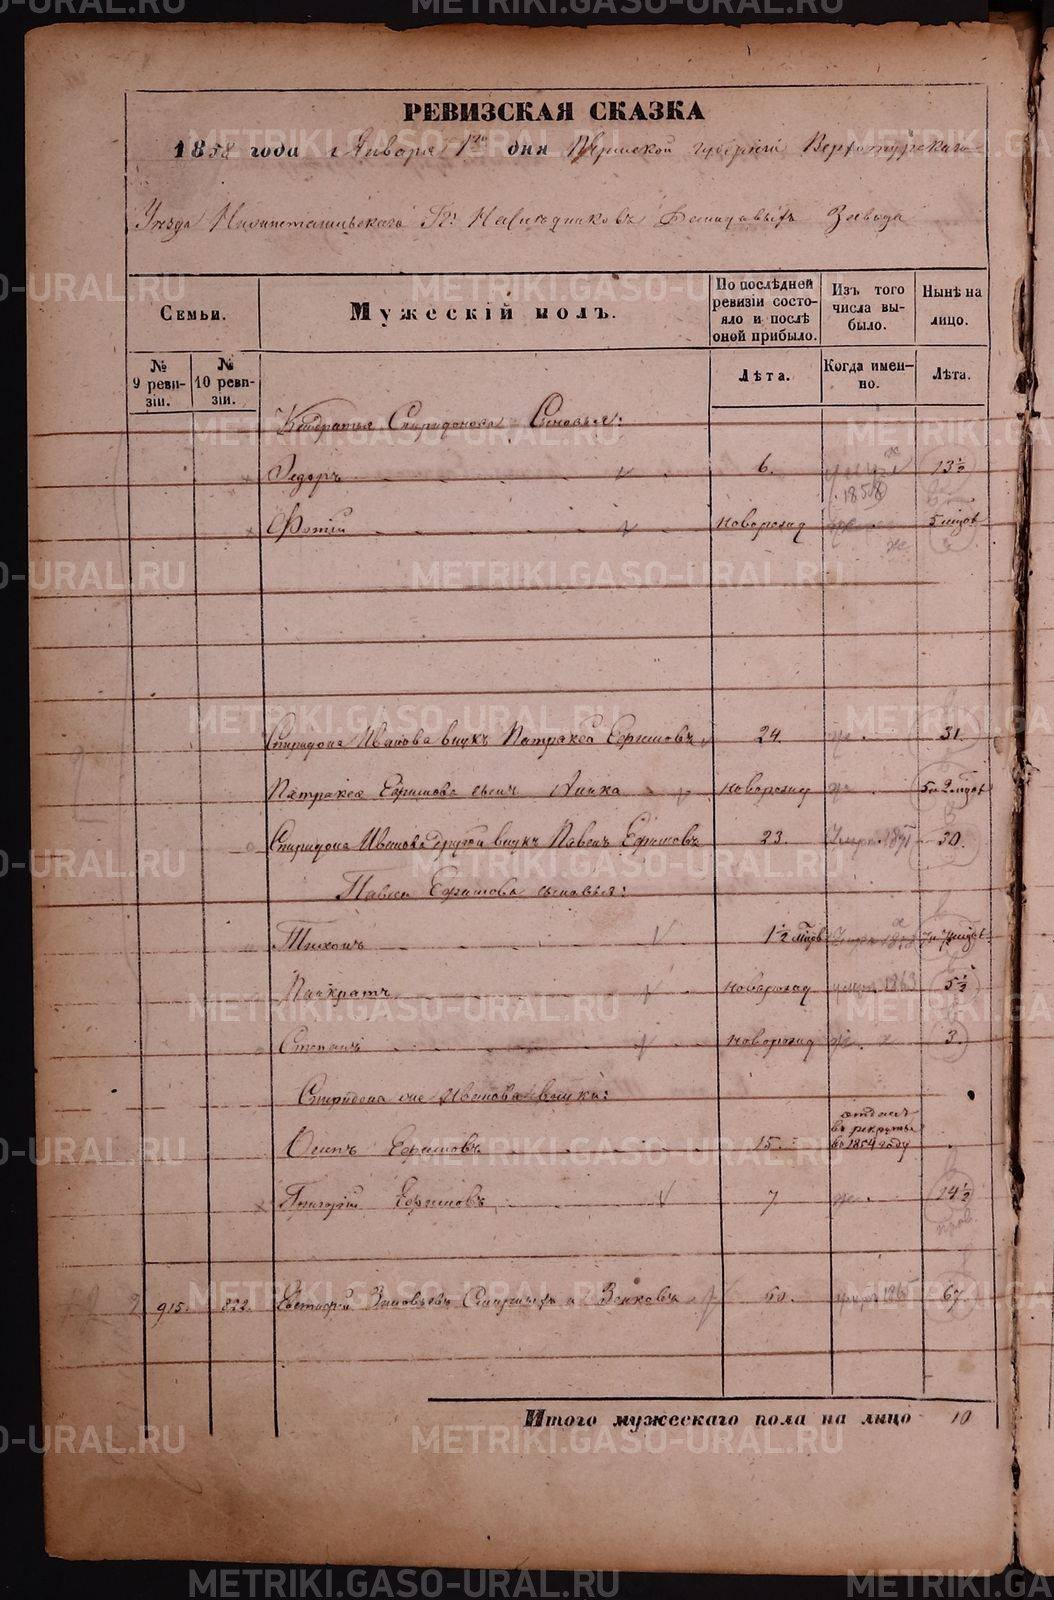 РЕВИЗСКАЯ СКАЗКА
1858 года Января 1го дня Пермской губернiи Верхотурскаго
Уѣзда Нижнетагильскаго Гг. Наслѣдниковъ Демидовыхъ Завода
Семьи.
Мужескiй полъ.
По послѣдней ревизiи состояло и послѣ оной прибыло.
Изъ того числа выбыло.
Нынѣ на лицо.
№ 9 ревизiи.
№ 10 ревизiи.
Лѣта.
Когда именно.
Лѣта.
Кондратья Спиридонова Сыновья:
Федоръ 6. 1858 13½
Фотiй новорожд 5 мцовъ
Спиридона Иванова внукъ Патракѣа Ефимовъ 24. 31.
Патракѣа Ефимова сынъ новорожд 5 и 2 мцовъ
Спиридона Иванова другой внукъ Павелъ Ефимовъ 23. 30.
Павла Ефимова сыновья:
Тихонъ 1½ мцовъ 7 и 7 мцовъ
Панкратъ новорожд умер. 1863 5½
Степанъ новорожд 3.
Спиридона же Иванова внуки:
Осипъ Ефимовъ 15. отданъ въ рекруты въ 1854 году
Григорiй Ефимовъ 7 14½
915. 822. Зиновьевъ 67
Итого мужескаго пола на лицо 10
METRIKI.GASO-URAL.RU